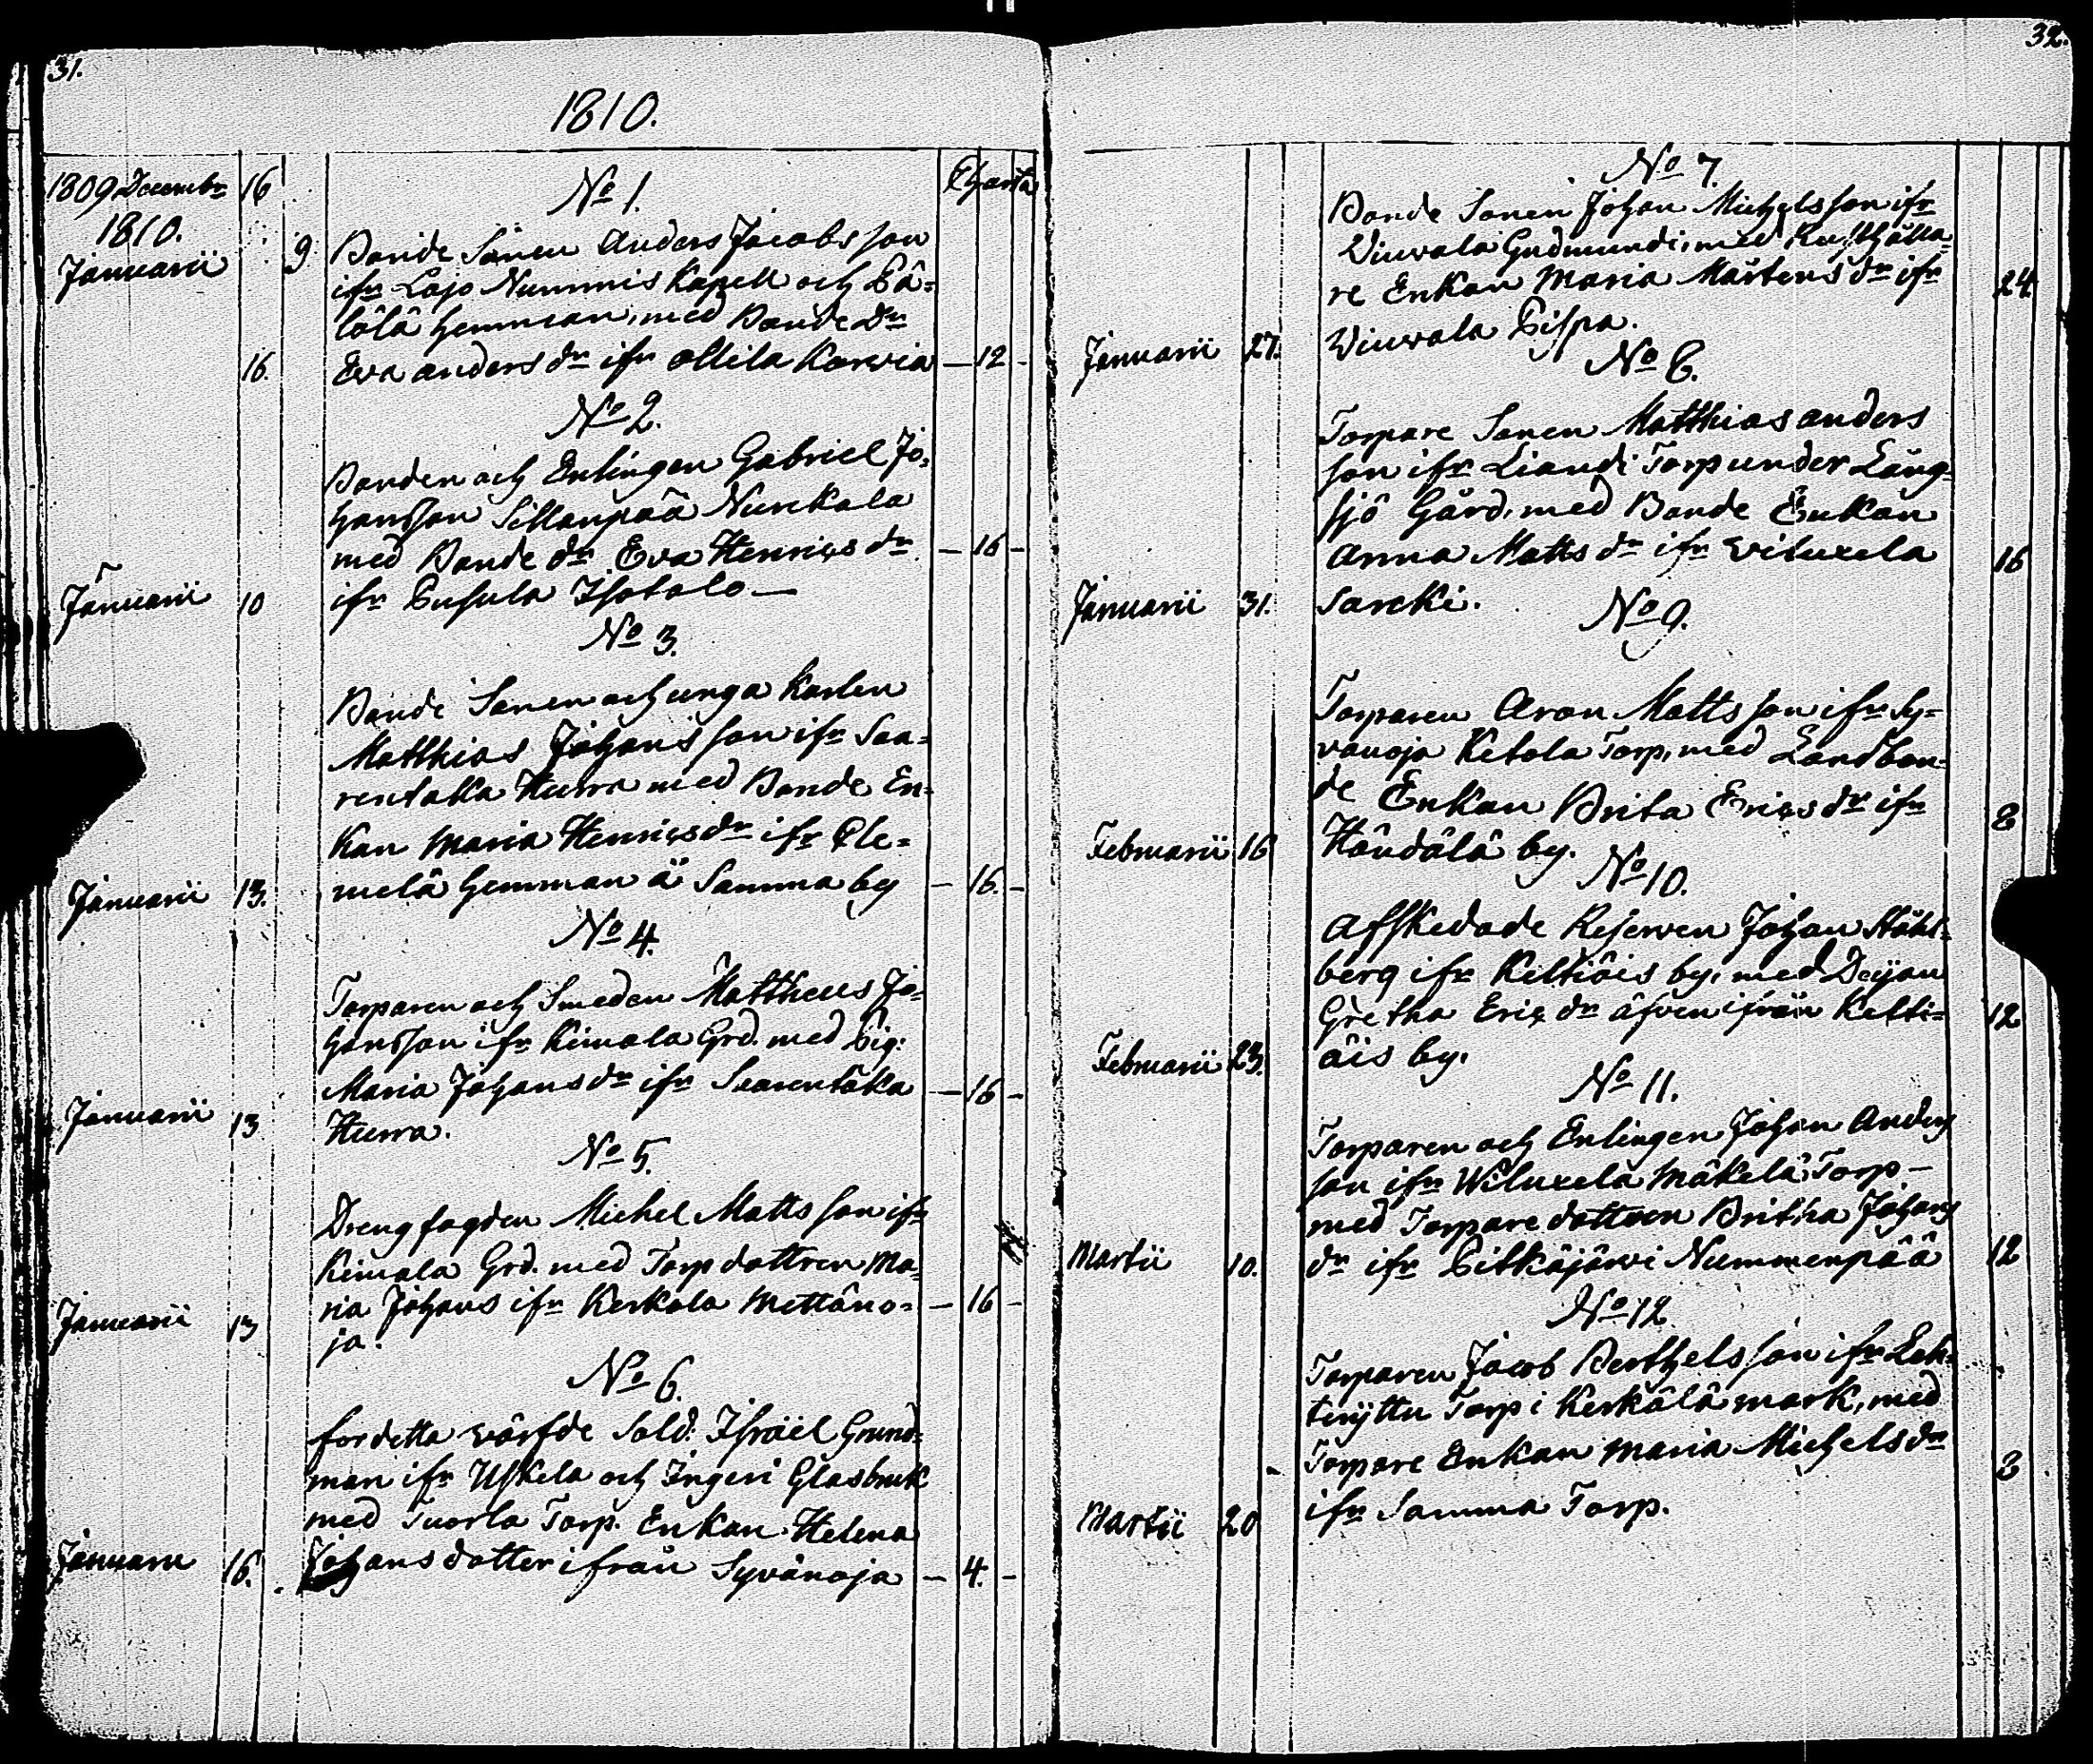 31.
1810.
1809 Decembr 16
1810.
Januarii 9
16.
Charta
No 1.
Bonde Sonen Anders Jacobsson
ifr Lojo Nummis Kapell och Pä=
lölä hemman, med Bonde Dr
Eva Anders dr ifr Ollila Karvia — 12 -
No 2.
Bonden och Enlingen Gabriel Jo=
hansson Sillanpää Nurekala
med Bonde dr Eva Henrics dr — 16 -
Januarii 10 ifr Pusula Isotalo —
No 3.
Bonde Sonen och unga Karlen
Matthias Johans son ifr Saa=
rentaka Hurra med Bonde En=
kan Maria Henricsdr ifr Cle=
Januarii 13. melä hemman ä Samma by — 16. -
No 4.
Torparen och Smeden Mattheus Jo=
hansson ifr Kimala Grd. med Pig:
Maria Johans dr ifr Saarentaka — 16 -
Januarii 13 Hurra.
No 5.
Drengfogden Michel Matts son ifr
Kimala Grd. med Torp dottren Ma=
ria Johans ifr Kerkola Mettäno= — 16 -
Januarii 13 ja.
No 6.
fordetta värfde Sold: Israël Grund=
man ifr Uskela och Ingeri Glasbruk
med Tuorla Torp. Enkan Helena
Januarii 16. Johans dotter ifrån Syvänoja — 4. -
32.
No 7.
Bonde Sonen Johan Michelsson ifr
Viuvala Gudmundi, med Rusthålla=
re Enkan Maria Mårtens dr ifr 24
Januarii 27. Viuvala Pispa.
No 8.
Torpare Sonen Matthias Anders
son ifr Liandi Torp under Lång=
sjö Gård, med Bonde Enkan
Anna Matts dr ifr Viluxela 16
Januarii 31. Sarcki.
No 9.
Torparen Aron Matts son ifr Sy=
vanoja Ketola Torp, med Landbon=
de Enkan Brita Erics dr ifr 8
Februarii 16 Händälä by.
No 10.
Afskedade Reserven Johan Ståhl=
berg ifr Keltiäis by, med Dejan
Gretha Eric dr äfven ifrån Kelti= 12
Februarii 23. äis by.
No 11.
Torparen och Enlingen Johan Anders
son ifr Wiluxela Mäkelä Torp —
med Torpare dottren Britha Johans
Martii 10. dr ifr Pitkäjärvi Nummenpää 12
No 12
Torparen Jacob Berthels son ifr Leh=
terÿttu Torp i Kerkälä mark, med
Torpare Enkan Maria Michels dr 8
Martii 20 ifr Samma Torp.